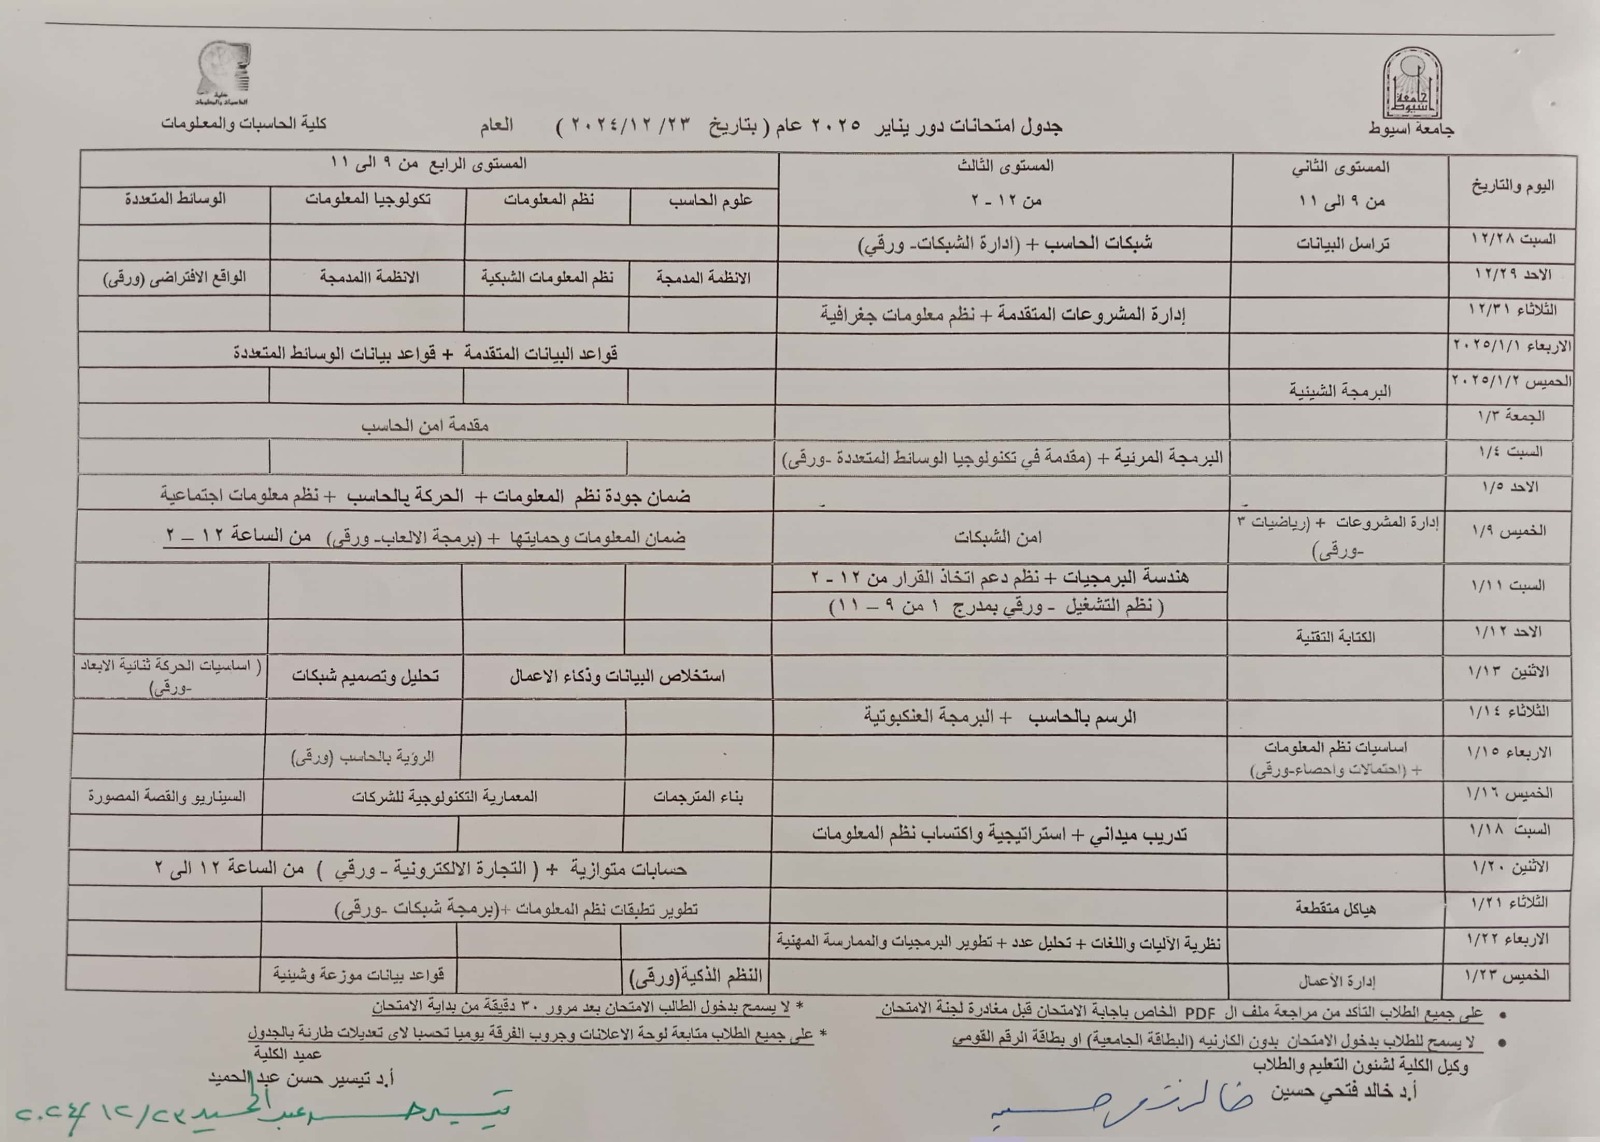 جامعة اسيوط
كلية الحاسبات والمعلومات
جدول امتحانات دور يناير ٢٠٢٥ عام ( بتاريخ ٢٠٢٤/١٢/٢٣ ) العام
كلية الحاسبات والمعلومات
اليوم والتاريخ
المستوى الثاني
من ٩ الى ١١
المستوى الثالث
من ١٢ - ٢
المستوى الرابع من ٩ الى ١١
علوم الحاسب
نظم المعلومات
تكولوجيا المعلومات
الوسائط المتعددة
السبت ١٢/٢٨
تراسل البيانات
شبكات الحاسب + (ادارة الشبكات- ورقي)
الاحد ١٢/٢٩
الانظمة المدمجة
نظم المعلومات الشبكية
الانظمة االمدمجة
الواقع الافتراضى (ورقى)
الثلاثاء ١٢/٣١
إدارة المشروعات المتقدمة + نظم معلومات جغرافية
الاربعاء ٢٠٢٥/١/١
قواعد البيانات المتقدمة + قواعد بيانات الوسائط المتعددة
الخميس ٢٠٢٥/١/٢
البرمجة الشيئية
الجمعة ١/٣
مقدمة امن الحاسب
السبت ١/٤
البرمجة المرئية + (مقدمة في تكنولوجيا الوسائط المتعددة -ورقى)
الاحد ١/٥
ضمان جودة نظم المعلومات + الحركة بالحاسب + نظم معلومات اجتماعية
الخميس ١/٩
إدارة المشروعات + (رياضيات ٣
-ورقى)
امن الشبكات
ضمان المعلومات وحمايتها + (برمجة الالعاب- ورقى) من الساعة ١٢ – ٢
السبت ١/١١
هندسة البرمجيات + نظم دعم اتخاذ القرار من ١٢ - ٢
( نظم التشغيل - ورقي بمدرج ١ من ٩ – ١١)
الاحد ١/١٢
الكتابة التقنية
الاثنين ١/١٣
استخلاص البيانات وذكاء الاعمال
تحليل وتصميم شبكات
( اساسيات الحركة ثنائية الابعاد
-ورقى)
الثلاثاء ١/١٤
الرسم بالحاسب + البرمجة العنكبوتية
الاربعاء ١/١٥
اساسيات نظم المعلومات
+ (احتمالات واحصاء-ورقى)
الرؤية بالحاسب (ورقى)
الخميس ١/١٦
بناء المترجمات
المعمارية التكنولوجية للشركات
السيناريو والقصة المصورة
السبت ١/١٨
تدريب ميداني + استراتيجية واكتساب نظم المعلومات
الاثنين ١/٢٠
حسابات متوازية + ( التجارة الالكترونية - ورقي ) من الساعة ١٢ الى ٢
الثلاثاء ١/٢١
هياكل متقطعة
تطوير تطبقات نظم المعلومات +(برمجة شبكات -ورقى)
الاربعاء ١/٢٢
نظرية الآليات واللغات + تحليل عدد + تطوير البرمجيات والممارسة المهنية
الخميس ١/٢٣
إدارة الأعمال
النظم الذكية(ورقى)
قواعد بيانات موزعة وشيئية
على جميع الطلاب التأكد من مراجعة ملف ال PDF الخاص باجابة الامتحان قبل مغادرة لجنة الامتحان
* لا يسمح بدخول الطالب الامتحان بعد مرور ٣٠ دقيقة من بداية الامتحان
لا يسمح للطلاب بدخول الامتحان بدون الكارنيه (البطاقة الجامعية) او بطاقة الرقم القومي
* على جميع الطلاب متابعة لوحة الاعلانات وجروب الفرقة يوميا تحسبا لاى تعديلات طارئة بالجدول
وكيل الكلية لشئون التعليم والطلاب
أ.د خالد فتحي حسين
عميد الكلية
أ.د تيسير حسن عبد الحميد
٢٠٢٤/١٢/٢٣